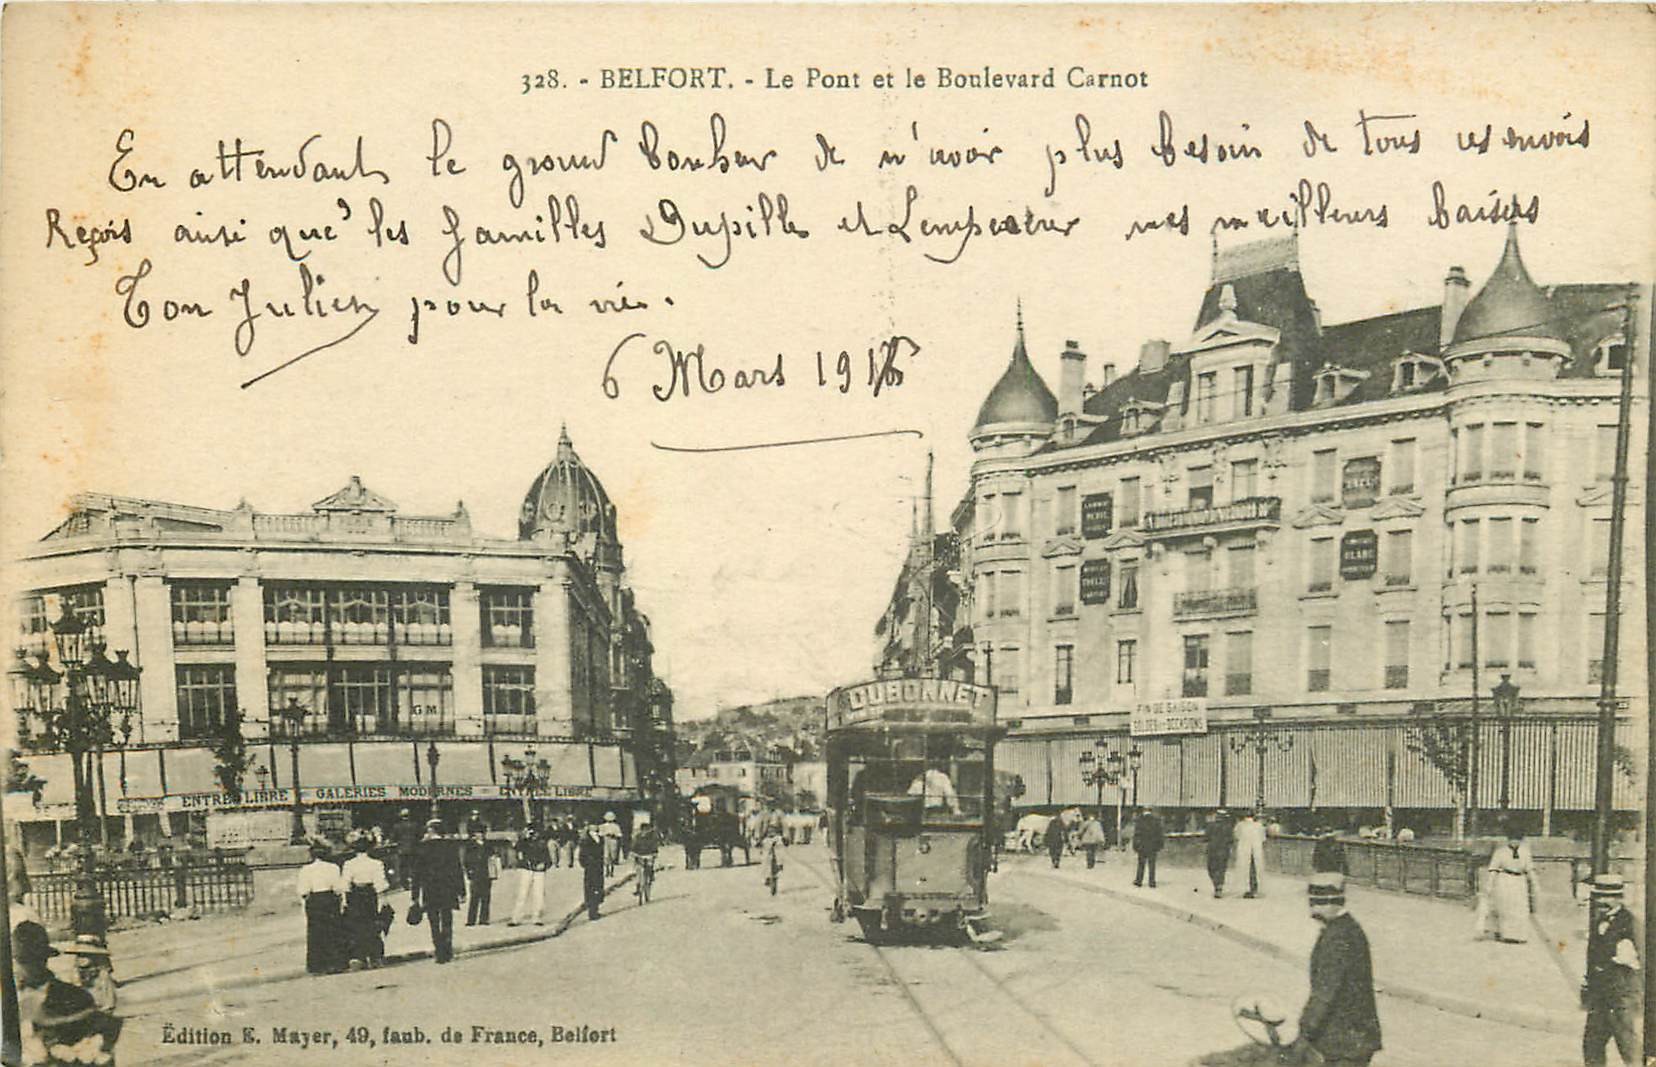 328. - BELFORT. - Le Pont et le Boulevard Carnot
En attendant le grand bonheur de n'avoir plus besoin de tous ces envois
Reçois ainsi que les familles Dupille et Lempereur mes meilleurs baisers
Ton Julien pour la vie.
6 Mars 1916
DUBONNET
GM
FIN DE SAISON
SOLDES et OCCASIONS
BLANC
ENTRÉE LIBRE = GALERIES MODERNES = ENTRÉE LIBRE
5
Édition E. Mayer, 49, faub. de France, Belfort